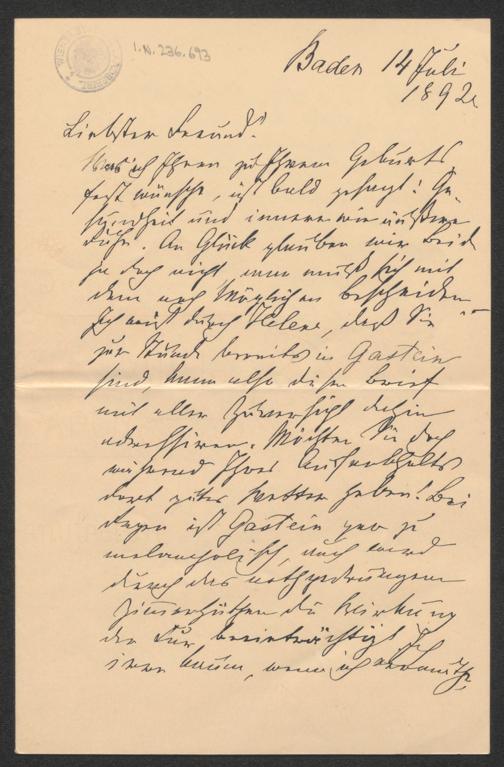 I.N. 236.693
Baden 14 Juli
1892
Liebster Freund!
Was ich Ihnen zu Ihrem Geburts
fest wünsche, ist bald gesagt: Ge-
sundheit und innere wie äußere
Ruhe. An Glück glauben wir beide
ja doch nicht, man muß sich mit
dem noch Möglichen bescheiden
Ich weiß durch Helene, daß Sie
zur Stunde bereits in Gastein
sind, kann also diesen Brief
mit aller Zuversicht dahin
adressiren. Möchten Sie doch
während Ihres Aufenthalts
dort gutes Wetter haben! Bei
Regen ist Gastein gar zu
melancholisch, auch wird
durch das nothgedrungene
Zimmerhüten die Wirkung
der Kur beeinträchtigt. Ich
irre kaum, wenn ich